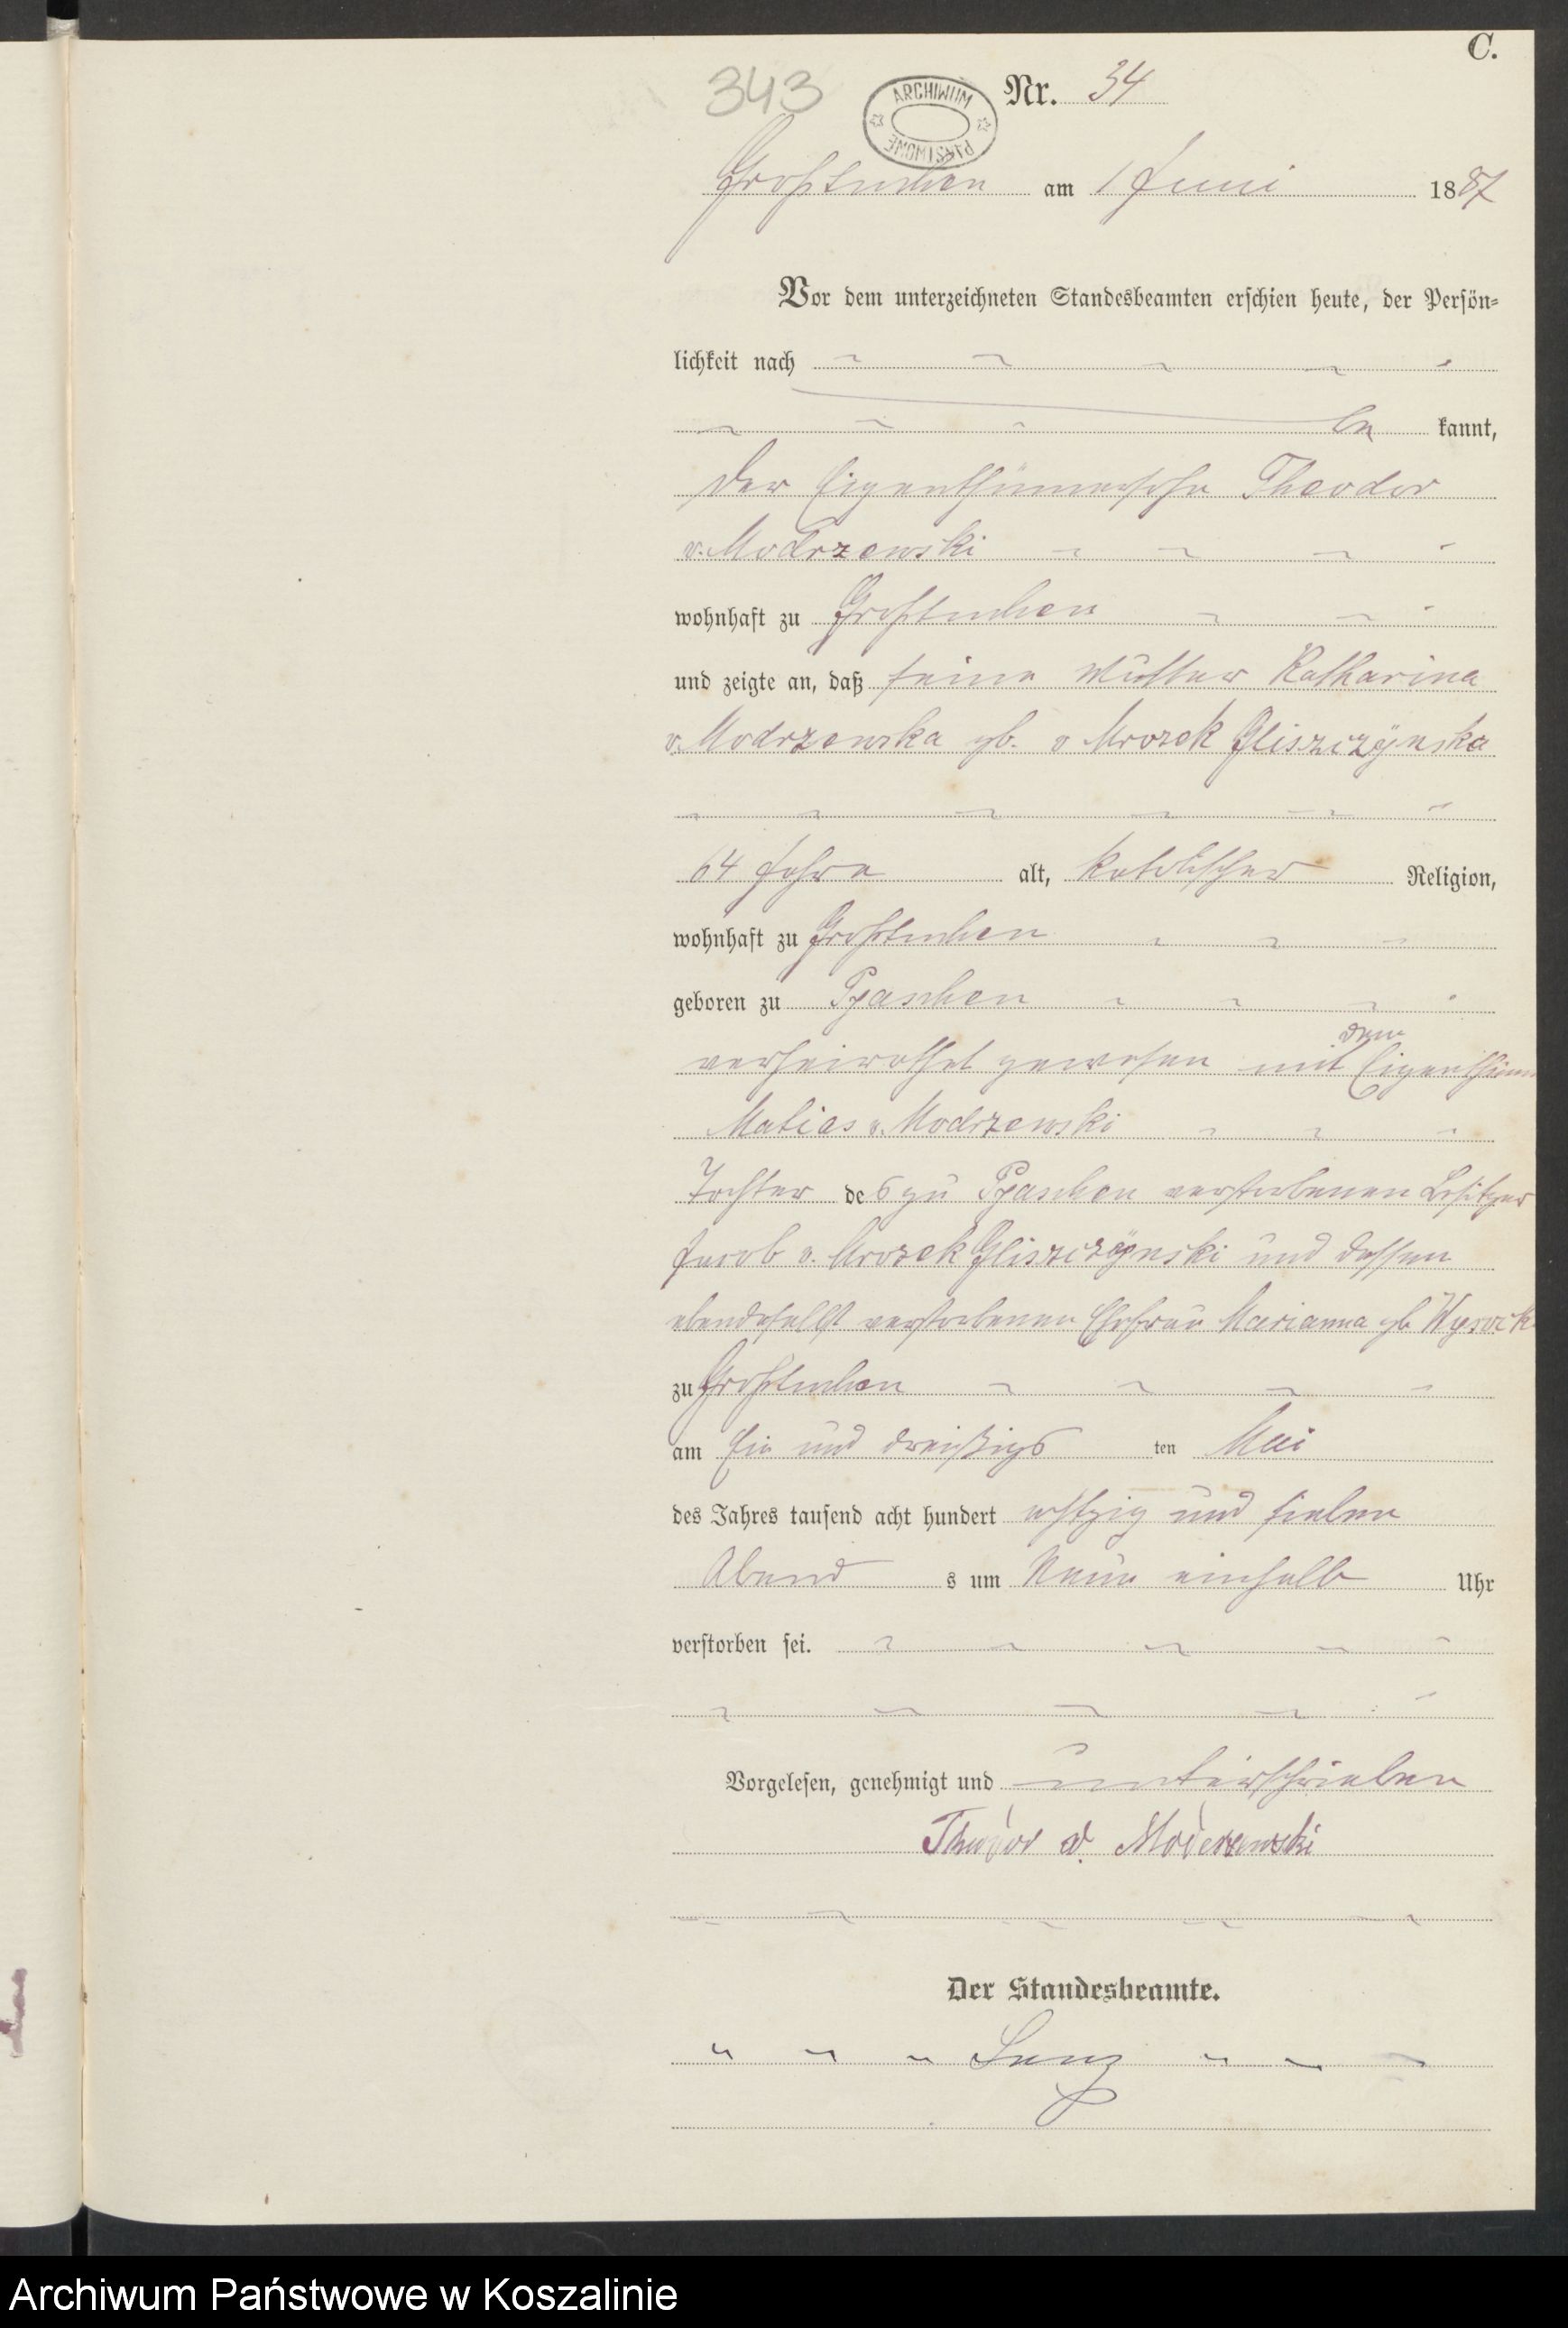 C.
343
ARCHIWUM
PAŃSTWOWE
Nr. 34
Großtuchen am 1 Juni 1887
Vor dem unterzeichneten Standesbeamten erschien heute, der Persön-
lichkeit nach
be kannt,
der Eigenthümersohn Theodor
v. Modrzewski
wohnhaft zu Großtuchen
und zeigte an, daß seine Mutter Katharina
v. Modrzewska gb. v Mrozek Gliszczÿnska
64 Jahre alt, katolischer Religion,
wohnhaft zu Großtuchen
geboren zu Pyaschen
verheirathet gewesen mit dem Eigenthüm
Matias v. Modrzewski
Tochter des zu Pyaschen verstorbenen Besitzer
Jacob v. Mrozek Gliszczÿnski und dessen
ebendaselbst verstorbenen Ehefrau Marianna gb Wysock
zu Großtuchen
am Ein und dreißigs ten Mai
des Jahres tausend acht hundert achtzig und sieben
Abend s um Neun einhalb Uhr
verstorben sei.
Vorgelesen, genehmigt und unterschrieben
Theodor v. Moderzewski
Der Standesbeamte.
Archiwum Państwowe w Koszalinie